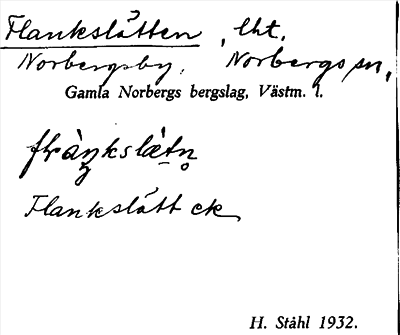 Flankslätten, lht.
Norbergsby, Norbergs sn,
Gamla Norbergs bergslag, Västm. l.
Flankslätt ek
H. Ståhl 1932.